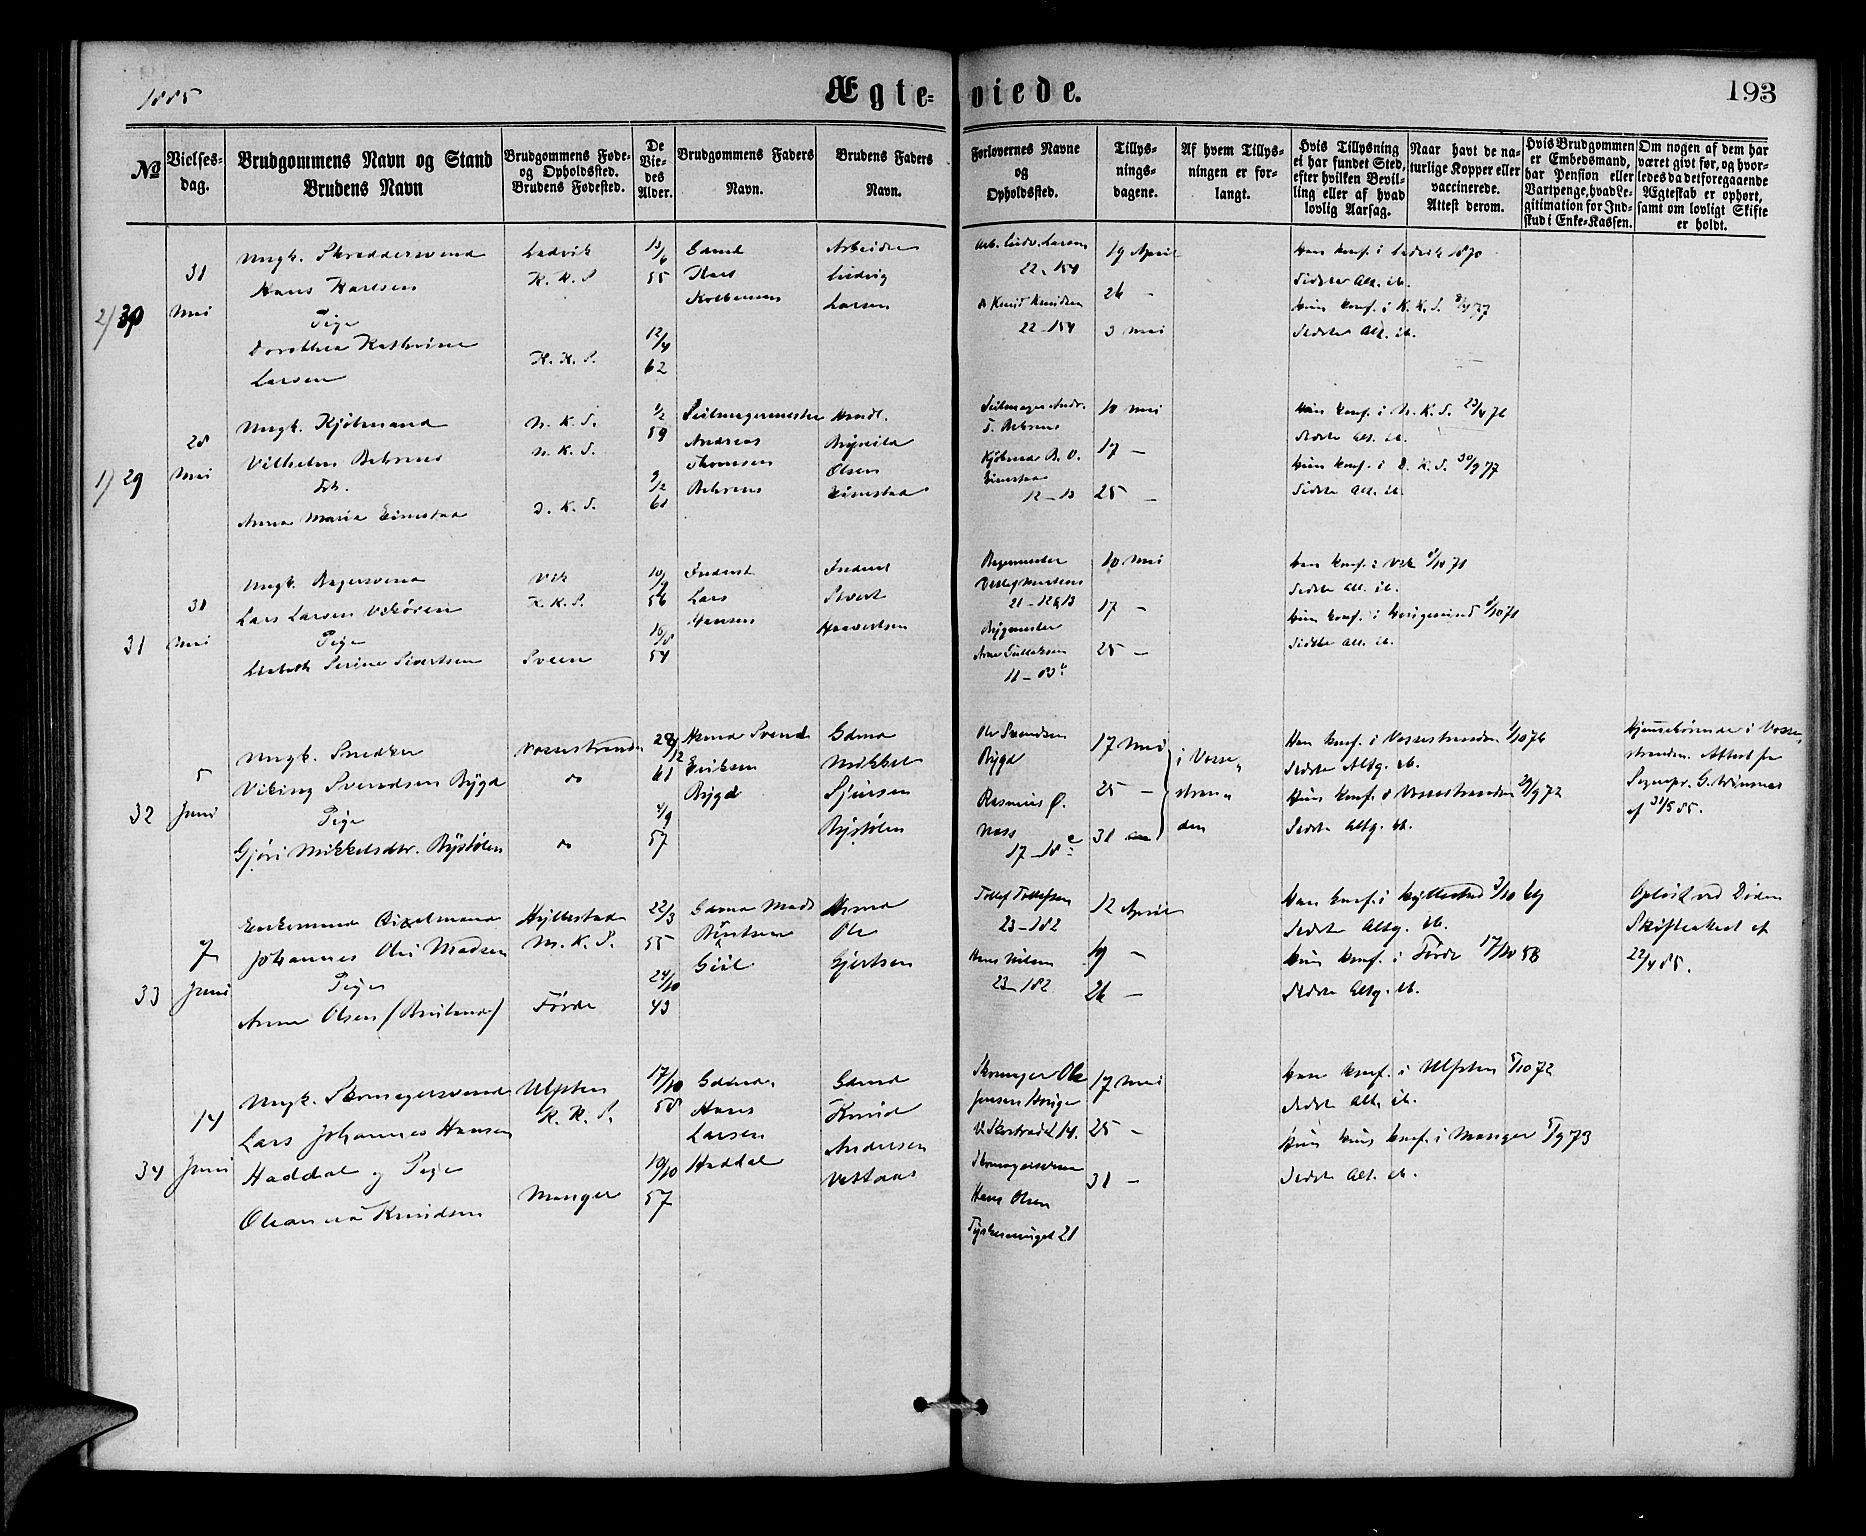 1885
Ægte-
viede.
193
No
Vielses-
dag.
Brudgommens Navn og Stand
Brudens Navn
Brudgommens Føde-
og Opholdssted.
Brudens Fødested.
De
Vie-
des
Alder.
Brudgommens Faders
Navn.
Brudens Faders
Navn.
Forlovernes Navne
og
Opholdssted.
Tillys-
nings-
dagene.
Af hvem Tillys-
ningen er for-
langt.
Hvis Tillysning
ei har fundet Sted,
efter hvilken Bevil-
ling eller af hvad
lovlig Aarsag.
Naar havt de na-
turlige Kopper eller
vaccinerede.
Attest derom.
Hvis Brudgommen
er Embedsmand,
har Pension eller
Vartpenge, hvad Le-
gitimation for Ind-
skud i Enke-Kassen.
Om nogen af dem har
været givt før, og hvor-
ledes da det foregaaende
Ægteskab er ophørt,
samt om lovligt Skifte
er holdt.
2) 30
31
Mai
Ungk. Skreddersvend
Hans Karlsen
Pige
Dorothea Kathrine
Larsen
Ladvik
K. K. S.
K. K. S.
13/6
55
12/4
62
Gdmd
Karl
Arbeider
Ludvig
Larsen
Arb. Ludv. Larsen
22-154
Knud Knudsen
22-154
19 April
26 -
3 Mai
Han konf. i Ladvik 1870
Sidste Alt. ib.
Hun konf. i K. K. S. 8/4 77
Sidste Alt. ib.
1) 29
28
Mai
Ungk. Kjøbmand
Vilhelm Behrens
Frk.
Anna Maria Eimstad
N. K. S.
N. K. S.
D. K. S.
1/2
59
2/2
61
Seilmagermester
Andreas
Thomsen
Behrens
Handl.
Brynild
Olsen
Eimstad
Seilmager Andr.
T. Behrens
Kjøbmd B. O.
Eimstad
12-13
10 Mai
17 -
25 -
Han konf. i N. K. S. 23/4 76
Sidste Alt. ib.
Hun konf. i D. K. S. 30/9 77
Sidste Alt. ib.
31
31
Mai
Ungk. Bagersvend
Lars Larsen Vikøren
Pige
Lisbeth Serine Sivertsen
Vik
K. K. S.
Sveen
10/9
56
16/8
54
Inderst
Lars
Hansen
Inderst
Sivert
Haavertsen
Bagermester
21-126,13
Bygmester
Arne Gullaksen
11-83
10 Mai
17 -
25 -
Han konf. i Vik 1/10 71
Sidste Alt. ib.
Hun konf. i Haugesund 1/10 71
Sidste Alt. ib.
32
5
Juni
Ungk. Snedker
Viking Svendsen Bygd
Pige
Gjøri Mikkelsdtr. Bystølen
Vossestranden
do
do
28/12
61
4/9
57
Hsmd Svend
Eriksen
Bygd
Gdmd
Mikkel
Sjursen
Bystølen
Ole Svendsen
Bygd
Rasmus Ø.
Ness
17-18 c
17 Mai
25 -
31 -
i Vosse-
stran-
den
Han konf. i Vossestranden 1/10 76
Sidste Altg. ib.
Hun konf. i Vossestranden 29/9 72
Sidste Altg. ib.
Hjemhørende i Vosse-
stranden. Attest fra
Sognepr. G.
af 31/5 85.
33
7
Juni
Enkemand
Johannes Olai Madsen
Pige
Anna Olsen (Bruland)
Hyllestad
N. K. S.
Førde
22/3
55
24/10
43
Gdmd Mads
Bentsen
Geil
Hsmd
Ole
Gjertsen
Tollef Tollefsen
23-182
Hans Nilsen
23-182
12 April
19 -
26 -
Han konf. i Hyllestad 3/10 69
Sidste Altg. ib.
Hun konf. i Førde 17/10 58
Sidste Altg. ib.
Opløst ved Døden
Skifteattest af
22/4 85.
34
14
Juni
Ungk. Skomagersvend
Lars Johannes Hansen
Haddal og Pige
Oleanna Knudsen
Ulfsten
K. K. S.
Manger
17/10
58
19/10
57
Gdmd.
Hans
Larsen
Haddal
Gdmd
Knud
Andersen
Vettaas
Skomager Ole
Jensen Hauge
V. Skostrædet 14.
Skomagersvend
Hans Olsen
Tyskesmuget 21
17 Mai
25 -
31 -
Han konf. i Ulfsten 5/10 72
Sidste Alt. ib.
Hun konf. i Manger 5/9 73
Sidste Alt. ib.